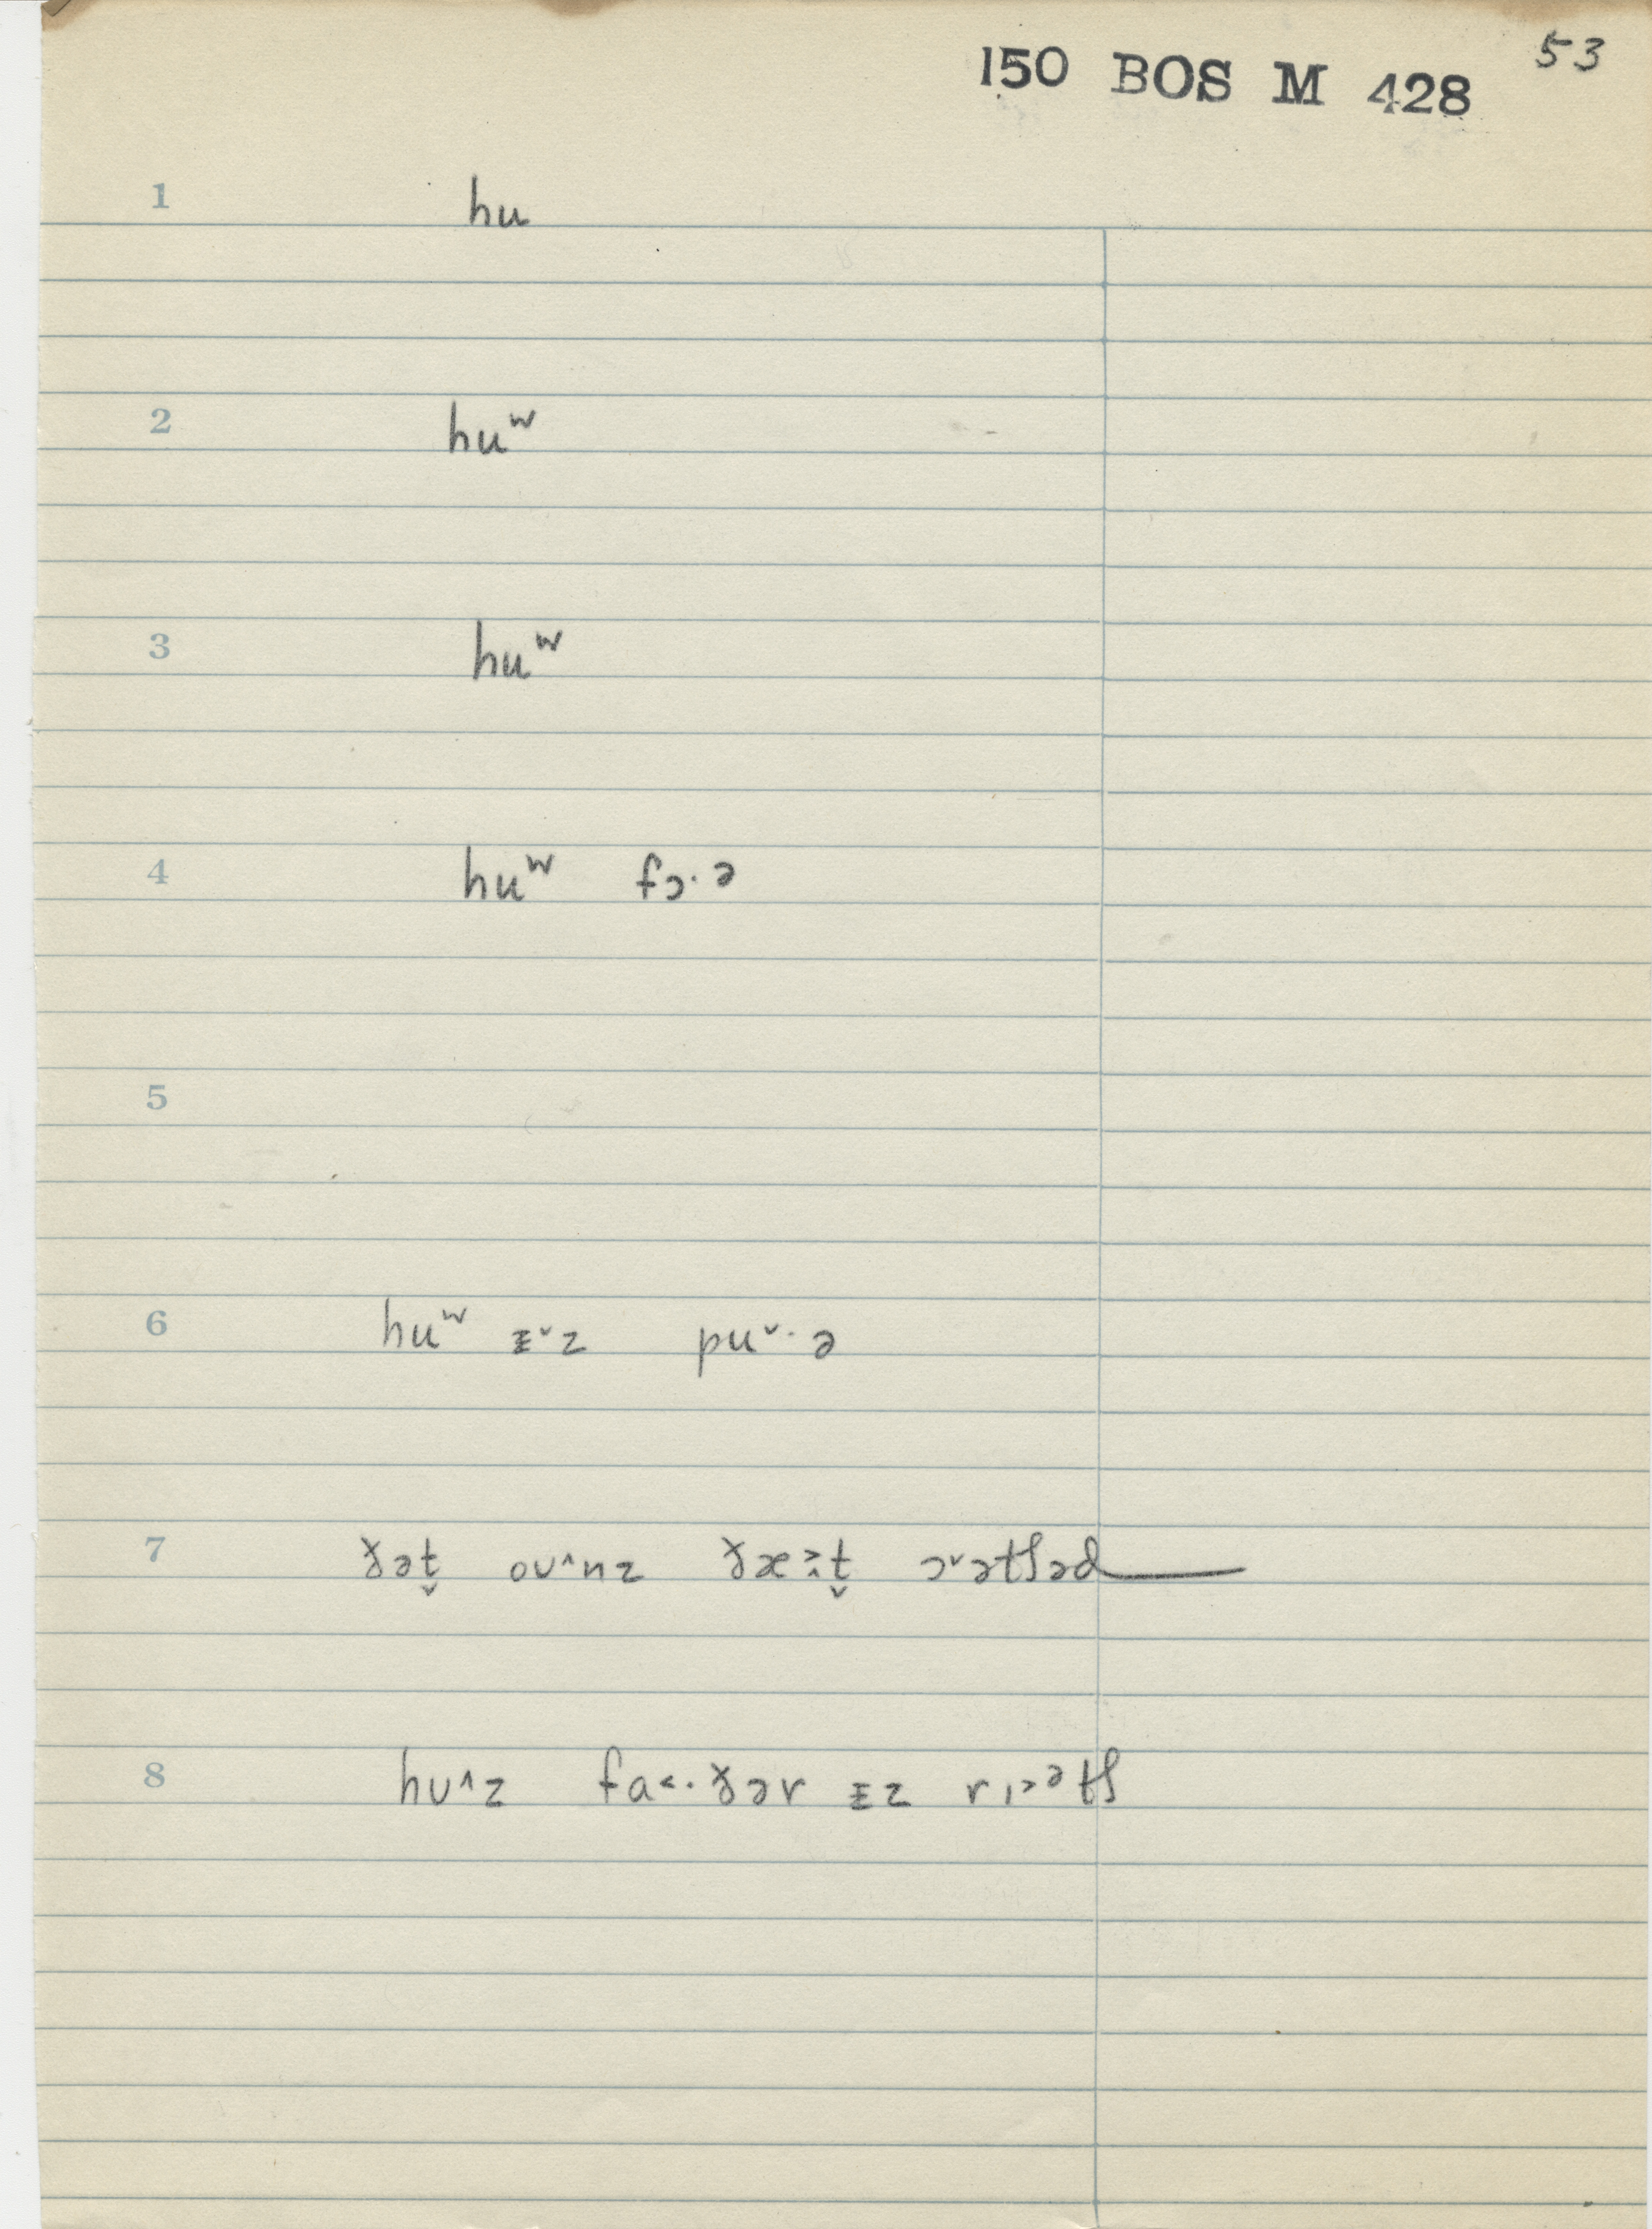 53
150 BOS M 428
1 hu
2 huʷ
3 huʷ
4 huʷ fɔ·ə
5
6 huʷ ɪ˅z pu˅·ə
7 ðət̬ oʊ˄nz ðæ:t̬ ɔ˅ətʃəd
8 hʊ˄z fa˂·ðər ɪz rɪ˃ᵊtʃ